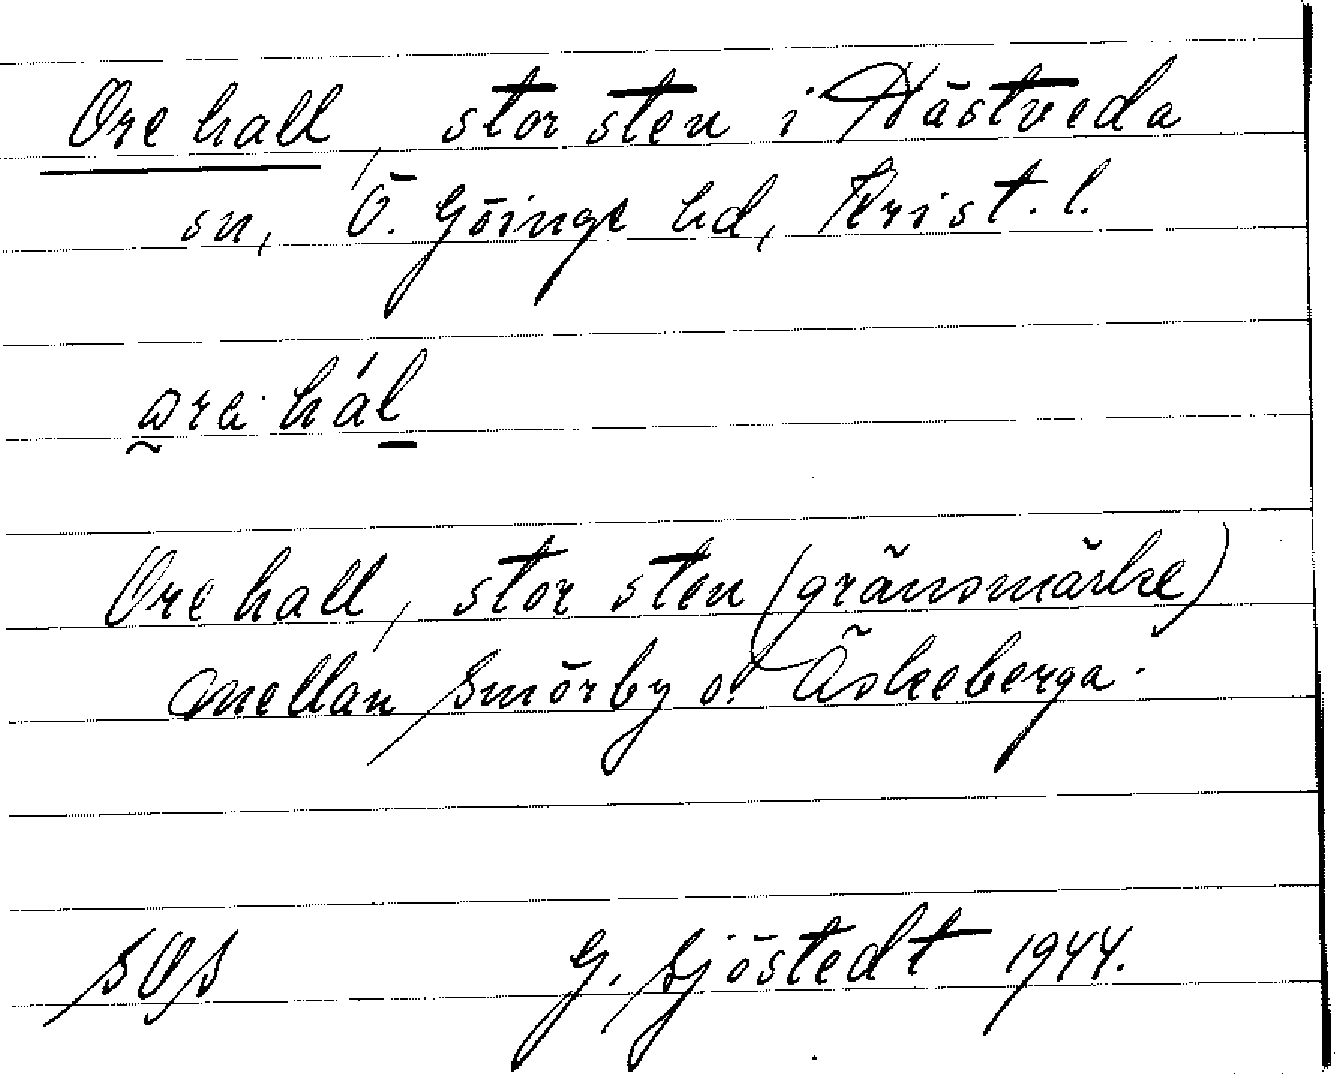 Ore hall, stor sten i Hästveda
sn, Ö. Göinge hd, Krist. l.
Ore hall, stor sten (gränsmärke)
mellan Smörby o. Äskeberga.
SOS G. Sjöstedt 1944.